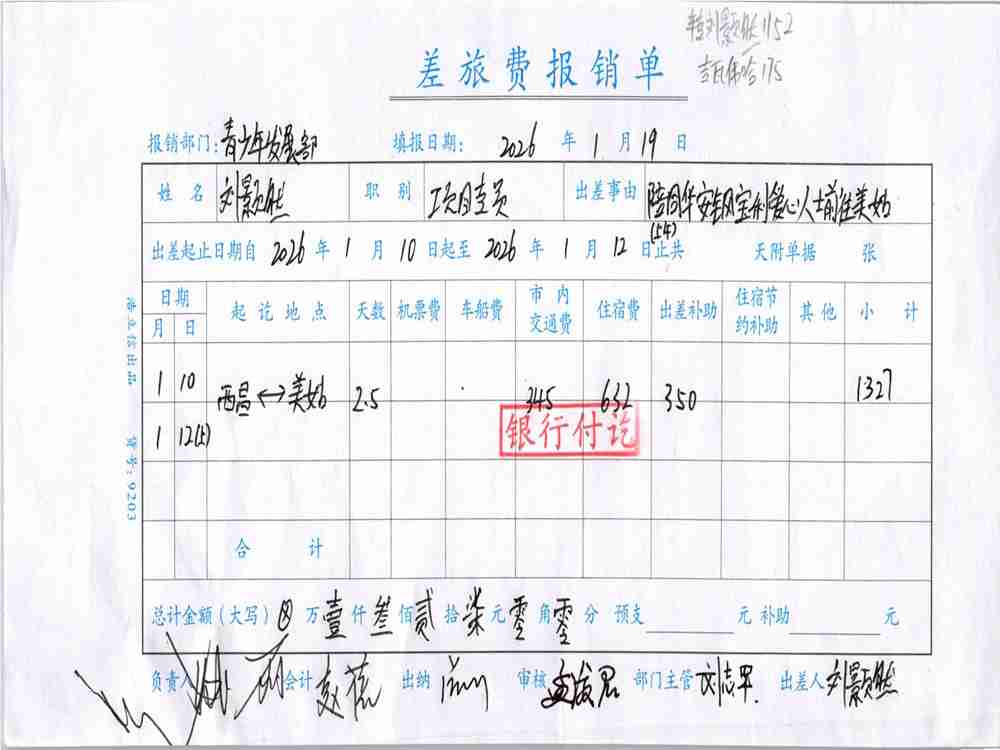 刘景然 1152
175
差旅费报销单
报销部门：青少年发展部 填报日期： 2026 年 1 月 19 日
姓名 刘景然 职别 项目专员 出差事由 陪同华安钢宝利爱心人士前往美姑
出差起止日期自 2026 年 1 月 10 日起至 2026 年 1 月 12 日止共 天附单据 张
(上午)
日期 起讫地点 天数 机票费 车船费 市内交通费 住宿费 出差补助 住宿节约补助 其他 小计
月 日
1 10 西昌↔美姑 2.5 345 632 350 1327
1 12(上)
银行付讫
合计
总计金额(大写) ⊗ 万 壹 仟 叁 佰 贰 拾 柒 元 零 角 零 分 预支 元 补助 元
负责人 会计 出纳 审核 部门主管 刘志军 出差人 刘景然
浩立信出品 货号：9203